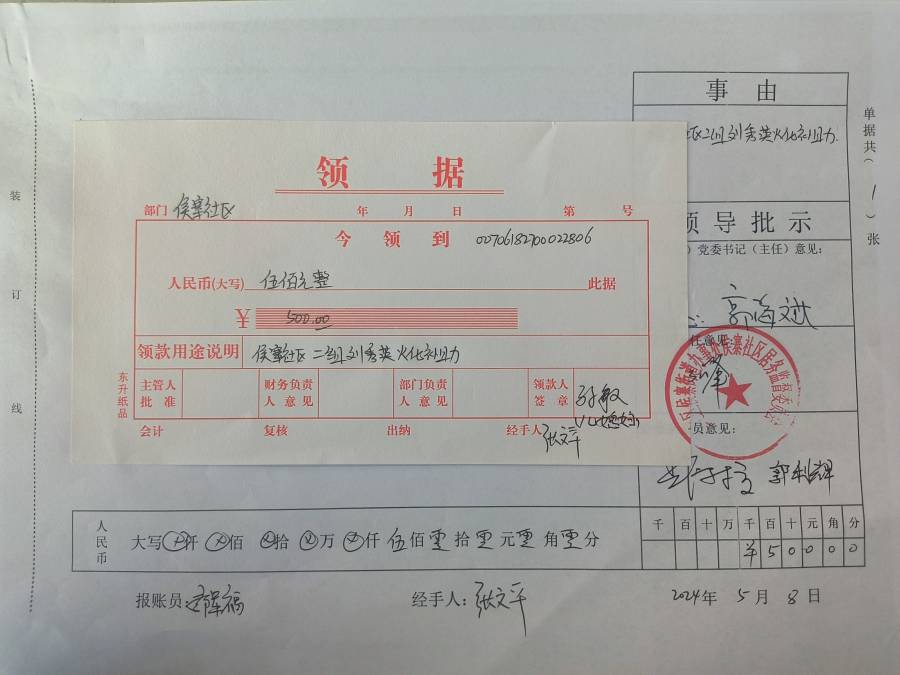 事由
区二组刘秀英火化补助.
单据共(1)张
装订线
领导批示
党委书记(主任)意见:
任意见:
员意见:
郭利辉
领据
部门 侯寨社区 年 月 日 第 号
今领到 00706182700022806
人民币(大写) 伍佰元整 此据
¥ 500.00
领款用途说明 侯寨社区二组刘秀英火化补助
主管人批准 财务负责人意见 部门负责人意见 领款人签章 孙敏
会计 复核 出纳 经手人 张文平
东升纸品
人民币
大写 仟 佰 拾 万 仟 伍佰零拾零元零角零分
千百十万千百十元角分
¥50000
报账员: 经手人: 张文平 2024年5月8日